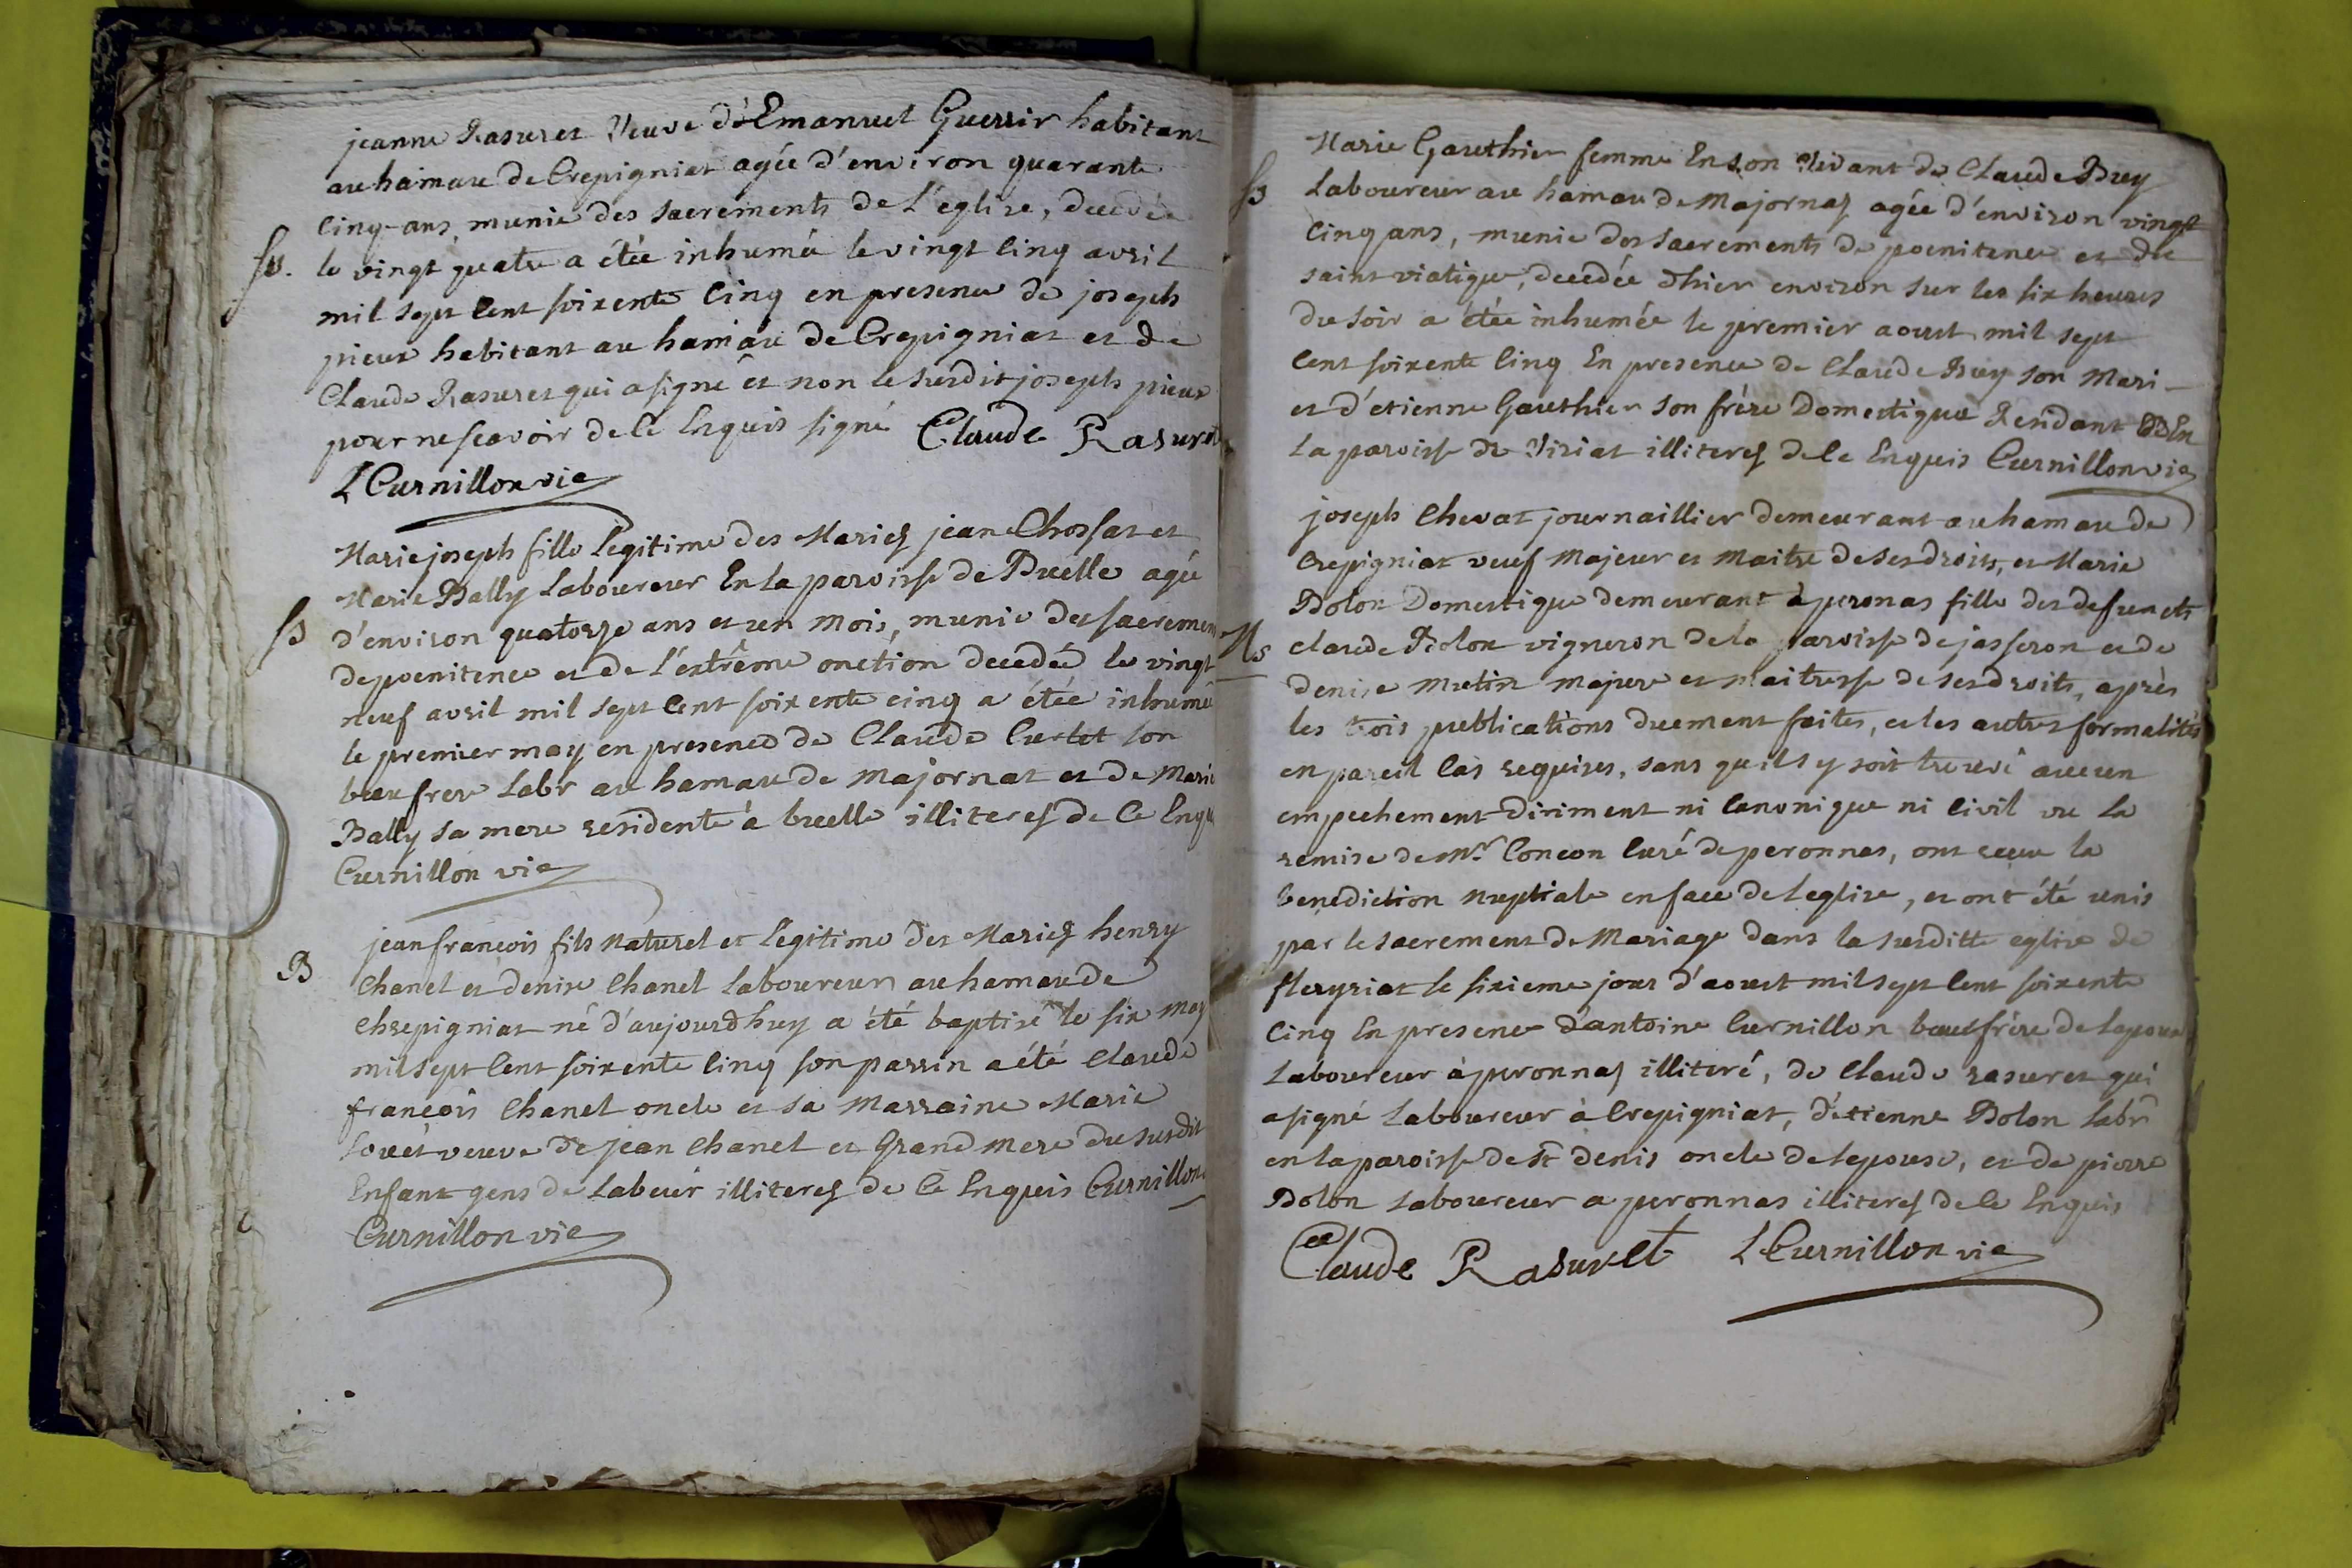 jeanne Rasuret Veuve d'Emanuel Guerrir habitant
au hamau de Crepigniat agée d'environ quarante
Cinq ans, munie des sacrements de L'eglise, decedée
Su. le vingt quatre a étée inhumée le vingt Cinq avril
mil sept Cent soixente Cinq en presence de joseph
pieux habitant au hamau de Crepigniat et de
Claude Rasuret qui a signé et non le susdit joseph pieux
pour ne scavoir de Ce Enquis signé Claude Rasuret
L Curnillon vic
Marie joseph fille legitime des Mariés jean Chossat et
Marie Bally Laboureur En la paroisse de Buelle agée
Ss d'environ quatorze ans et un mois, munie des sacremen
de poenitence et de l'extrême onction decedée le vingt
neuf avril mil sept Cent soixente cinq a étée inhumé
le premier may en presence de Claude Curtet son
beaufrere Labr au hamau de Majornat et de Mari
Bally sa mere residente à buelle illiteres de Ce Enqu
Curnillon vic
jean francois fils naturel et legitime des Mariés henry
B Chanel et denise Chanel Laboureurs au hamau de
Chrepigniat né d'aujourdhuy a été baptisé le six may
mil sept Cent soixente Cinq son parrin a été Claude
francois Chanel oncle et sa Marraine Marie
veuve de jean Chanel et Grand mere du susdit
Enfant gens de Labeur illiteres de Ce Enquis Curnillon
Curnillon vic
Marie Gauthier femme En son vivant de Claude Buy
Ss Laboureur au hamau de Majornas agée d'environ vingt
Cinq ans, munie des sacrements de poenitence et du
saint viatique, decedée d'hier environ sur les six heures
du soir a étée inhumée le premier aoust mil sept
Cent soixente Cinq En presence de Claude Buy son Mari
et d'etienne Gauthier son frère Domestique Residant En
La paroisse de Viriat illiteres de Ce Enquis Curnillon vic
joseph Chevat journaillier demeurant au hamau de
Crepigniat veuf Majeur et Maitre de ses droits, et Marie
Bolon Domestique demeurant à peronas fille des defuncts
Ms claude Bolon vigneron de la paroisse de jasseron et de
denise Mutin majure et maitresse de ses droits, après
les trois publications duement faites, et les autres formalités
en pareil Cas requises, sans qu'ils y soit trouvé aucun
empechement diriment ni Canonique ni Civil vu la
remise de Mr Concon Curé de peronnas, ont reçu la
benediction nuptiale en face de l'eglise, et ont été unis
par le sacrement de Mariage dans la susditte eglise de
fleyriat le sixieme jour d'aoust mil sept Cent soixente
Cinq En presence d'antoine Curnillon beaufrère de lepoux
Laboureur à peronnas illiteré, de Claude rasuret qui
a signé Laboureur à Crepigniat, d'etienne Bolon Labr
en la paroisse de St denis oncle de lepouse, et de pierre
Bolon Laboureur a peronnas illiteres de Ce Enquis
Claude Rasuret L Curnillon vic